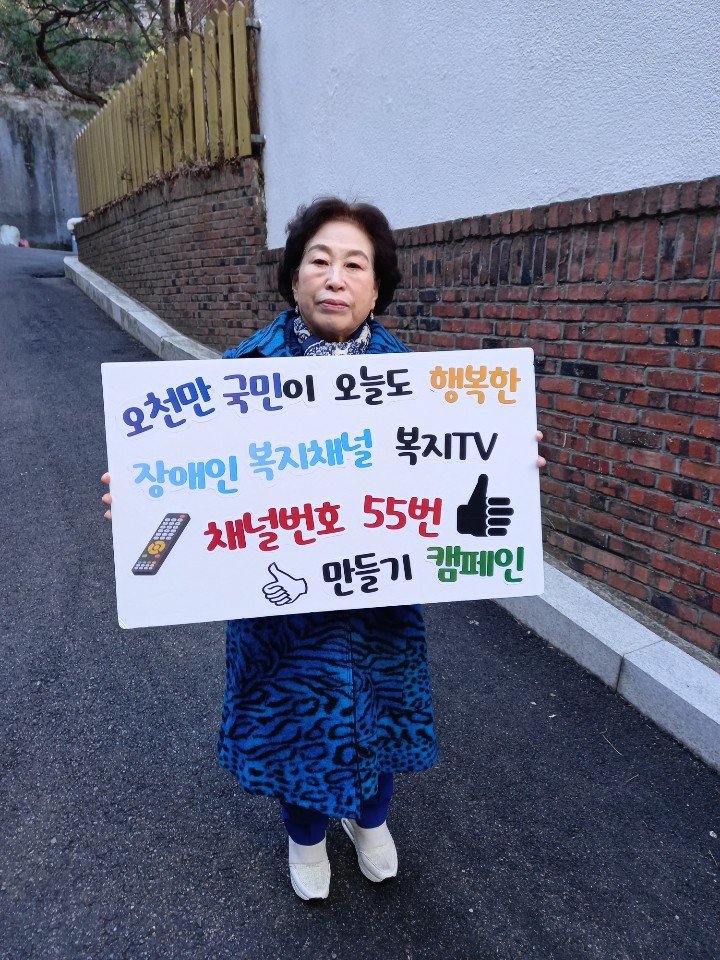 오천만 국민이 오늘도 행복한
장애인 복지채널 복지TV
채널번호 55번
만들기 캠페인